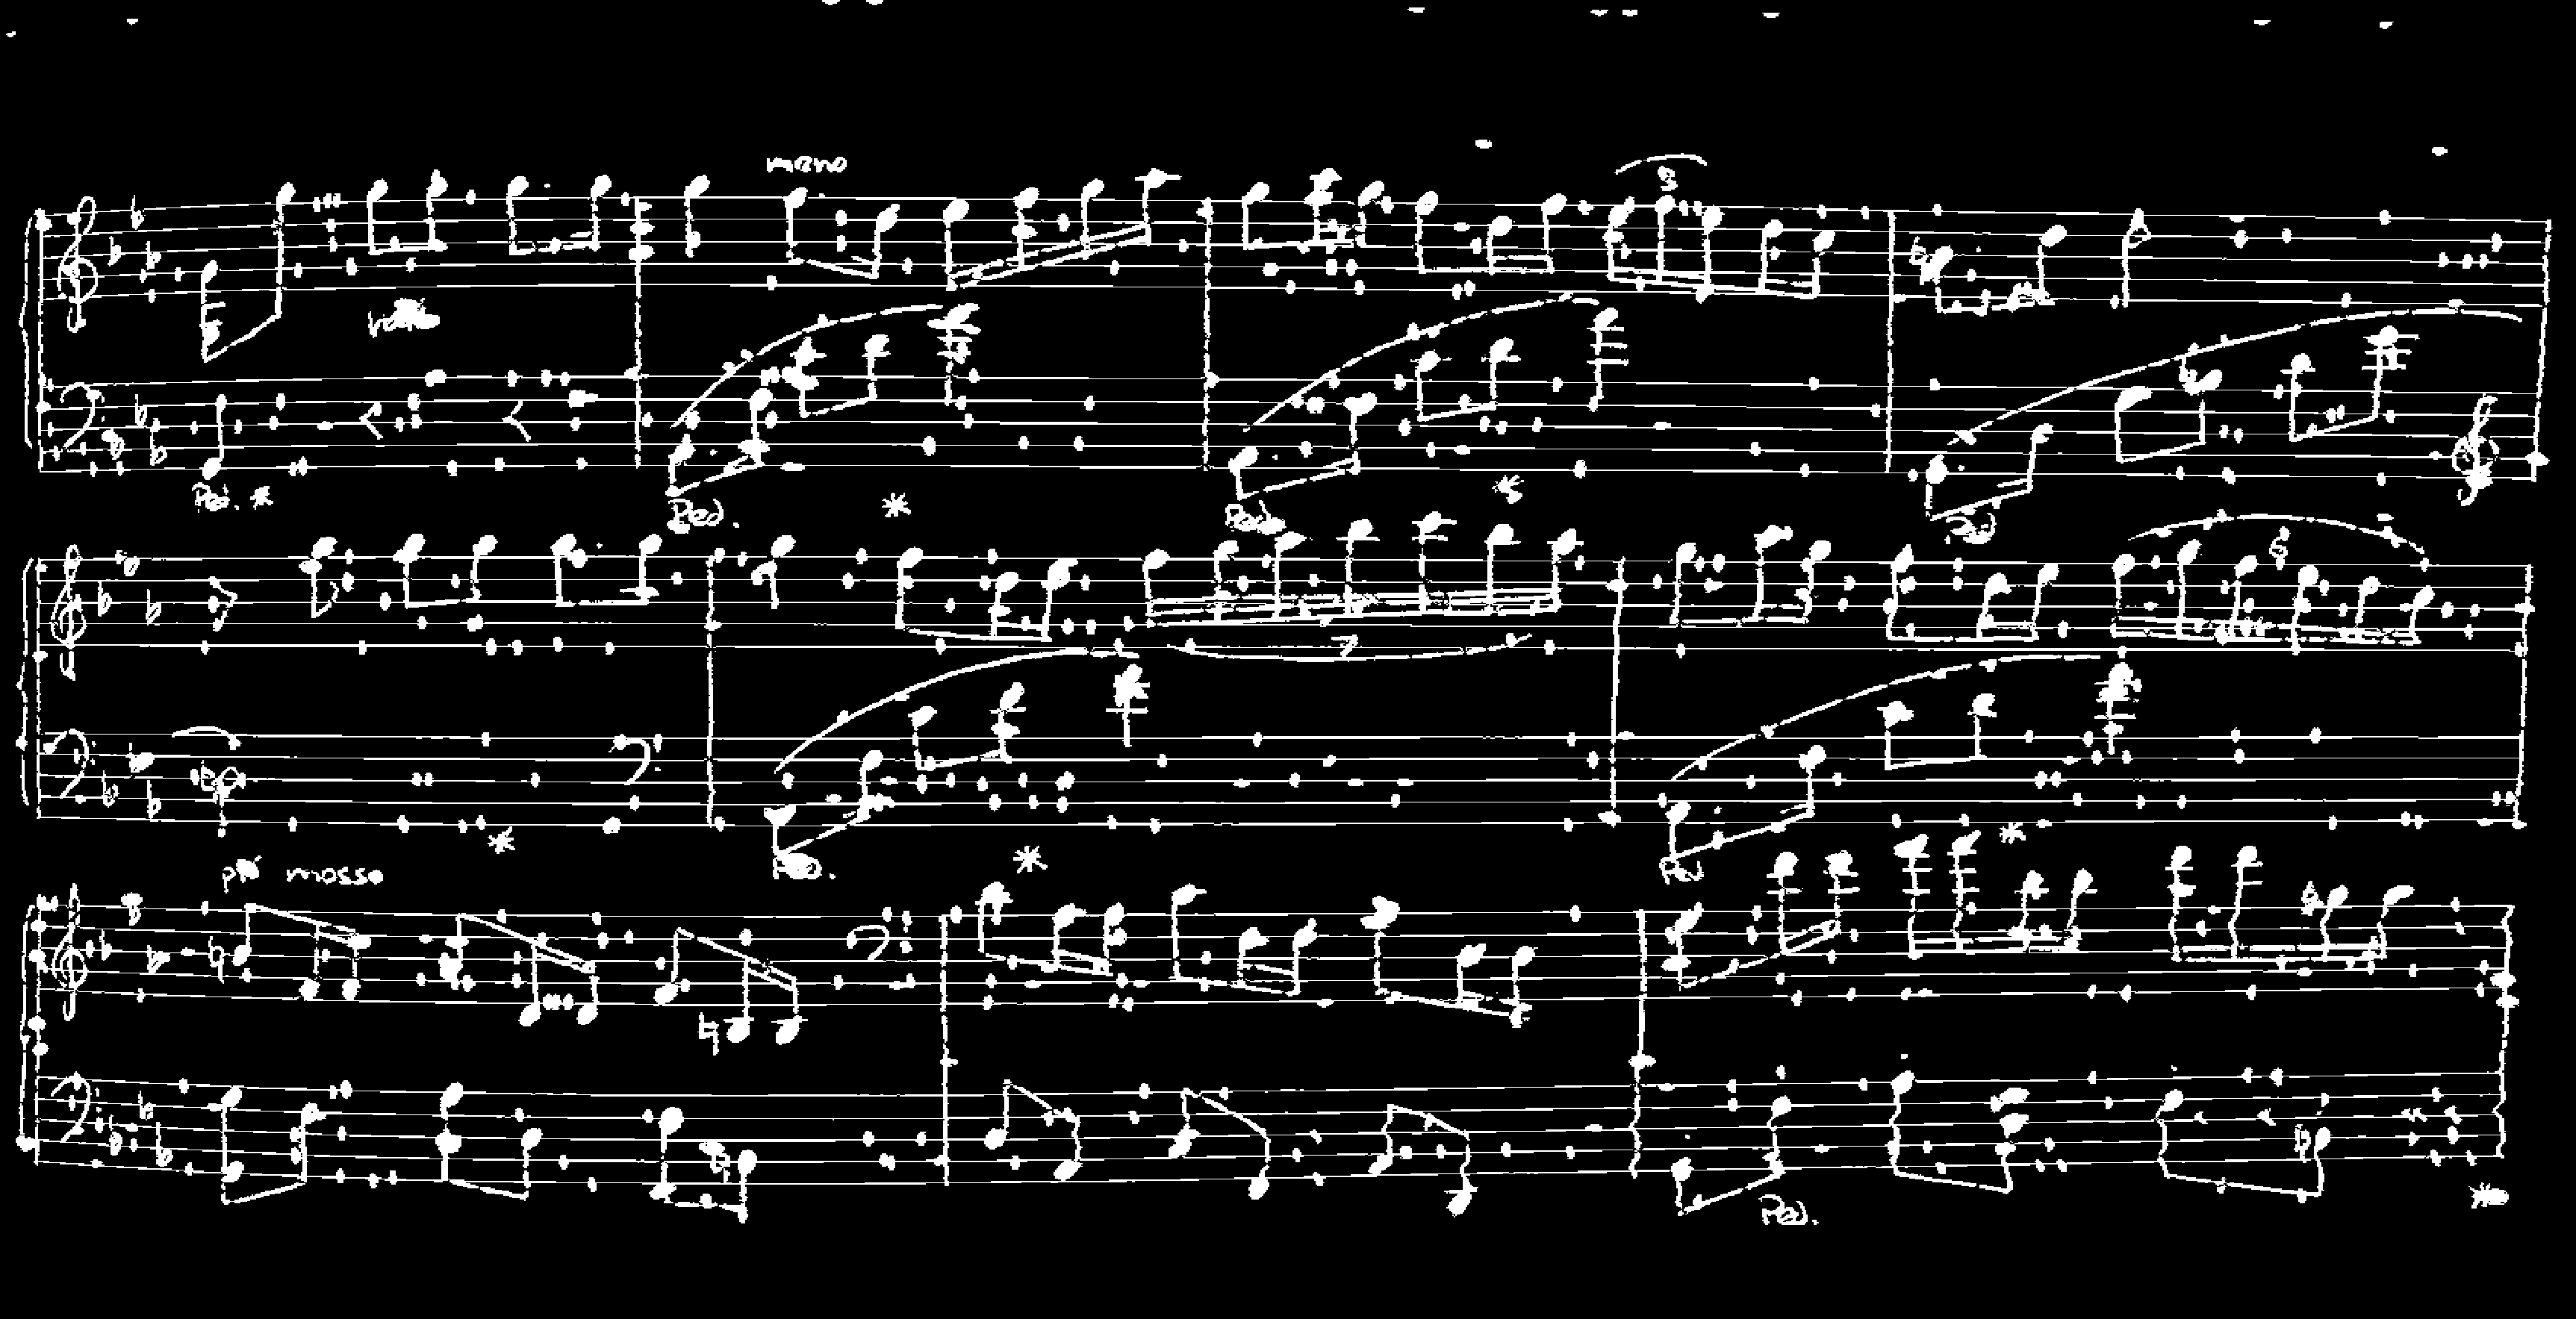 meno
3
Ped. *
Ped. *
Ped. *
Ped
6
7
*
Ped. *
Ped *
più mosso
Ped. *